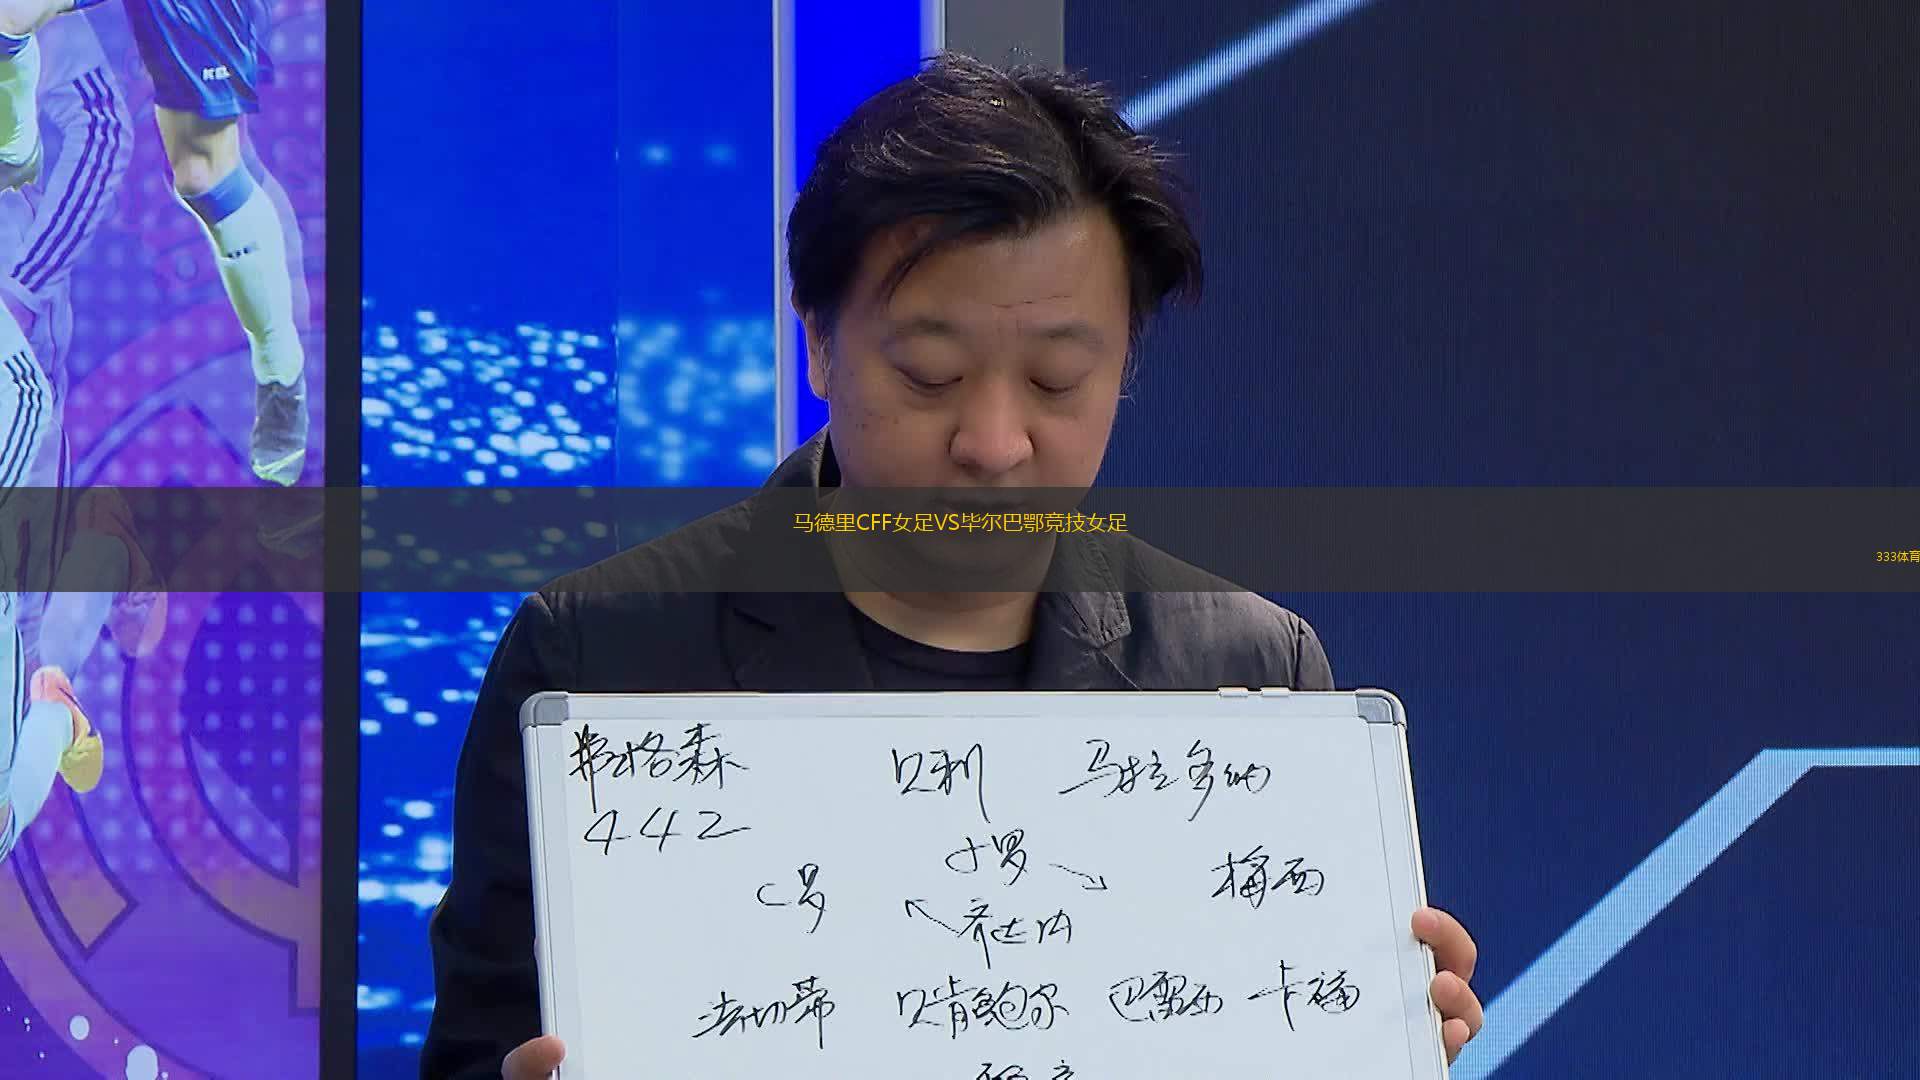 KEL
马德里CFF女足VS毕尔巴鄂竞技女足
333体育
弗格森 贝利 马拉多纳
442
小罗
C罗 梅西
齐达内
法切蒂 贝肯鲍尔 巴雷西 卡福